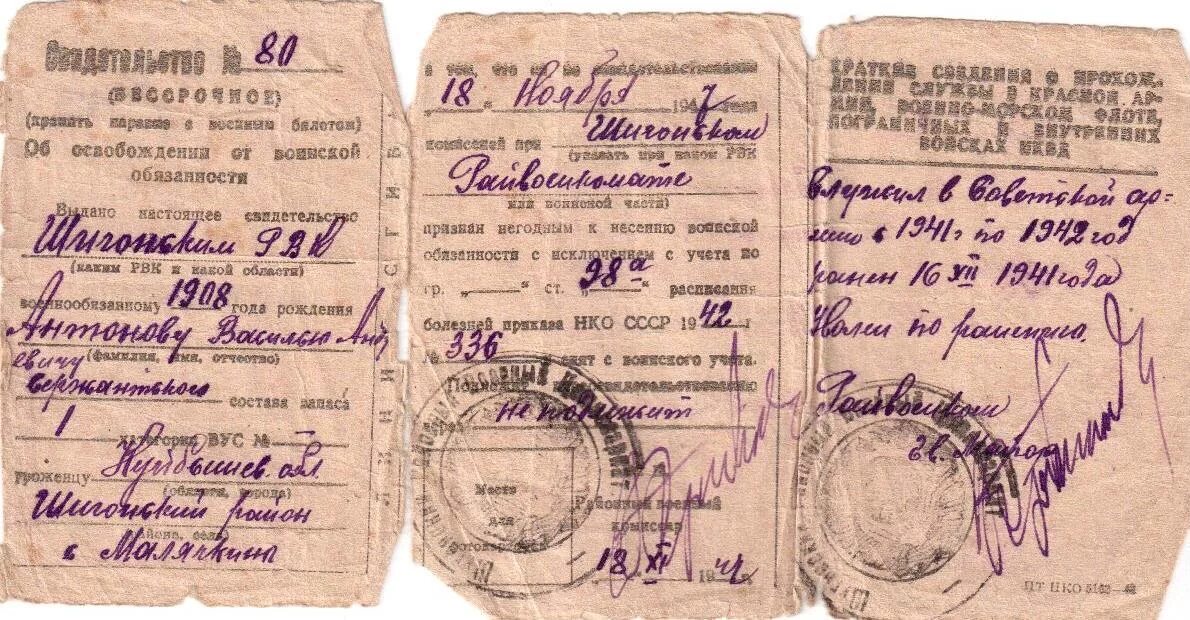 Свидетельство № 80
(БЕССРОЧНОЕ)
(хранить наравне с военным билетом)
Об освобождении от воинской
обязанности
Выдано настоящее свидетельство
Шигонским РВК
(каким РВК и какой области)
военнообязанному 1908 года рождения
Антонову Василью Анд
евичу (фамилия, имя, отчество)
Сержантского
состава запаса
1 категории ВУС № —
уроженцу Куйбышев. обл
(области, города)
Шигонский район
(района, села)
с Малячкина
ЛИНИЯ СГИБА
в том, что он по освидетельствовании
18 " Ноября 194 года
комиссией при Шигонском
(указать при каком РВК
Райвоенкомате
или воинской части)
признан негодным к несению воинской
обязанности с исключением с учета по
гр. „—“ ст. „98а“ расписания
болезней приказа НКО СССР 1942 г
№ 336 и снят с воинского учета.
Подлежит переосвидетельствованию
не подлежит
Место
для
фотокарточки
Районный военный
комиссар
18 XI 194
КРАТКИЕ СВЕДЕНИЯ О ПРОХОЖ-
ДЕНИИ СЛУЖБЫ В КРАСНОЙ АР-
МИИ, ВОЕННО-МОРСКОМ ФЛОТЕ,
ПОГРАНИЧНЫХ И ВНУТРЕННИХ
ВОЙСКАХ НКВД
Служил в Советской ар-
мию с 1941 г по 1942 год
ранен 16 XII 1941 года
Уволен по ранению.
Райвоенком
Майор
ПТ НКО 5162—42